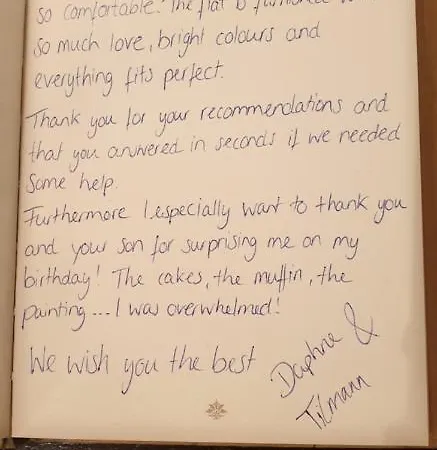 so comfortable. The flat is furnished
so much love, bright colours and
everything fits perfect.
Thank you for your recommendations and
that you answered in seconds if we needed
some help.
Furthermore I especially want to thank you
and your son for surprising me on my
birthday! The cakes, the muffin, the
painting... I was overwhelmed!
We wish you the best
Daphne &
Tilmann